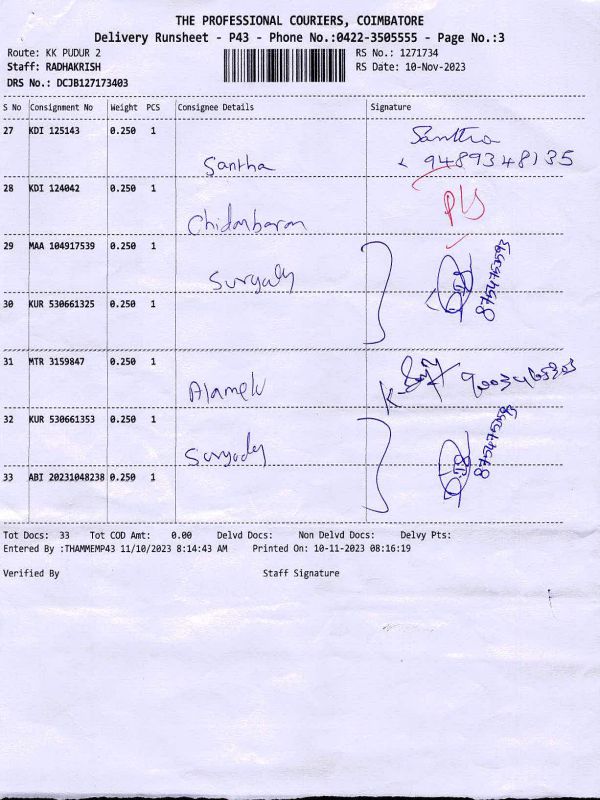 THE PROFESSIONAL COURIERS, COIMBATORE
Delivery Runsheet - P43 - Phone No.:0422-3505555 - Page No.:3
Route: KK PUDUR 2 RS No.: 1271734
Staff: RADHAKRISH RS Date: 10-Nov-2023
DRS No.: DCJB127173403
S No Consignment No Weight PCS Consignee Details Signature
27 KDI 125143 0.250 1 Santha Santha
9489348135
28 KDI 124042 0.250 1 Chidambaram
29 MAA 104917539 0.250 1 8754753593
30 KUR 530661325 0.250 1
31 MTR 3159847 0.250 1 Alamelu
32 KUR 530661353 0.250 1 8754753593
33 ABI 20231048238 0.250 1
Tot Docs: 33 Tot COD Amt: 0.00 Delvd Docs: Non Delvd Docs: Delvy Pts:
Entered By :THAMMEMP43 11/10/2023 8:14:43 AM Printed On: 10-11-2023 08:16:19
Verified By Staff Signature